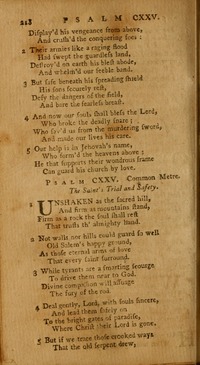 218 PSALM CXXV.
Display'd his vengeance from above,
And crush'd the conquering foes :
2 Their armies like a raging flood
Had swept the guardless land,
Destroy'd on earth his blest abode,
And whelm'd our feeble band.
3 But safe beneath his spreading shield
His sons securely rest,
Defy the dangers of the field,
And bare the fearless breast.
4 And now our souls shall bless the Lord,
Who broke the deadly snare ;
Who sav'd us from the murdering sword,
And made our lives his care.
5 Our help is in Jehovah's name,
Who form'd the heavens above ;
He that supports their wondrous frame
Can guard his church by love.
PSALM CXXV. Common Metre.
The Saint's Trial and Safety.
1 UNSHAKEN as the sacred hill,
And firm as mountains stand,
Firm as a rock the soul shall rest
That trusts th' almighty hand.
2 Not walls nor hills could guard so well
Old Salem's happy ground,
As those eternal arms of love
That every saint surround.
3 While tyrants are a smarting scourge
To drive them near to God,
Divine compassion will assuage
The fury of the rod.
4 Deal gently, Lord, with souls sincere,
And lead them safely on
To the bright gates of paradise,
Where Christ their Lord is gone.
5 But if we trace those crooked ways
That the old serpent drew,